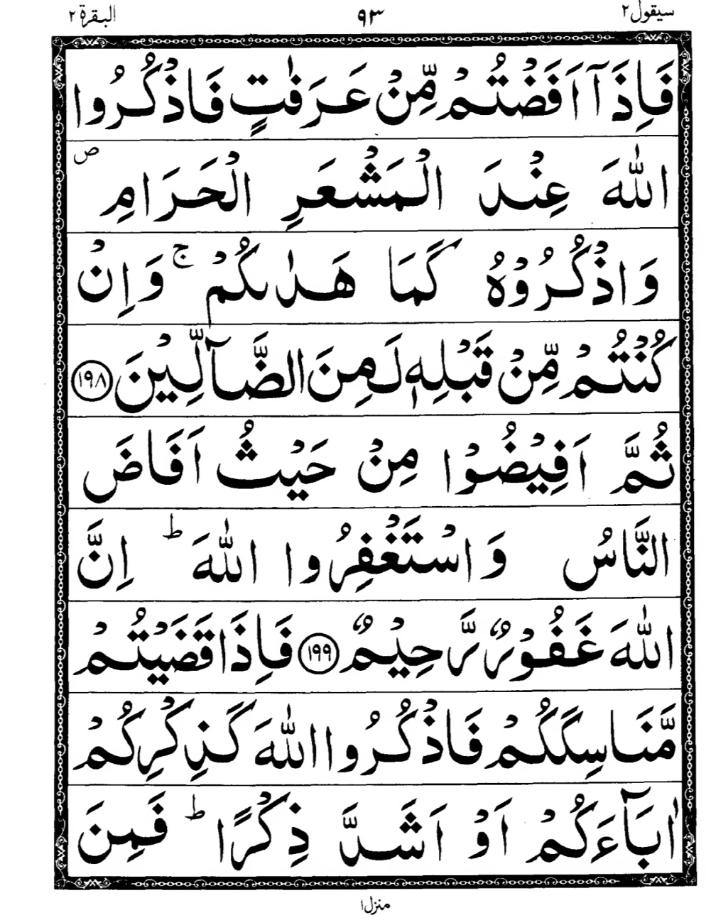 سیقول ٢ ٩٣ البقرة ٢
فَاِذَآ اَفَضْتُمْ مِّنْ عَرَفٰتٍ فَاذْكُرُوا
اللّٰهَ عِنْدَ الْمَشْعَرِ الْحَرَامِ ص
وَاذْكُرُوْهُ كَمَا هَدٰىكُمْ ۚ وَاِنْ
كُنْتُمْ مِّنْ قَبْلِهٖ لَمِنَ الضَّآلِّيْنَ ١٩٨
ثُمَّ اَفِيْضُوْا مِنْ حَيْثُ اَفَاضَ
النَّاسُ وَاسْتَغْفِرُوا اللّٰهَ ؕ اِنَّ
اللّٰهَ غَفُوْرٌ رَّحِيْمٌ ١٩٩ فَاِذَا قَضَيْتُمْ
مَّنَاسِكَكُمْ فَاذْكُرُوا اللّٰهَ كَذِكْرِكُمْ
اٰبَآءَكُمْ اَوْ اَشَدَّ ذِكْرًا ؕ فَمِنَ
منزل ١